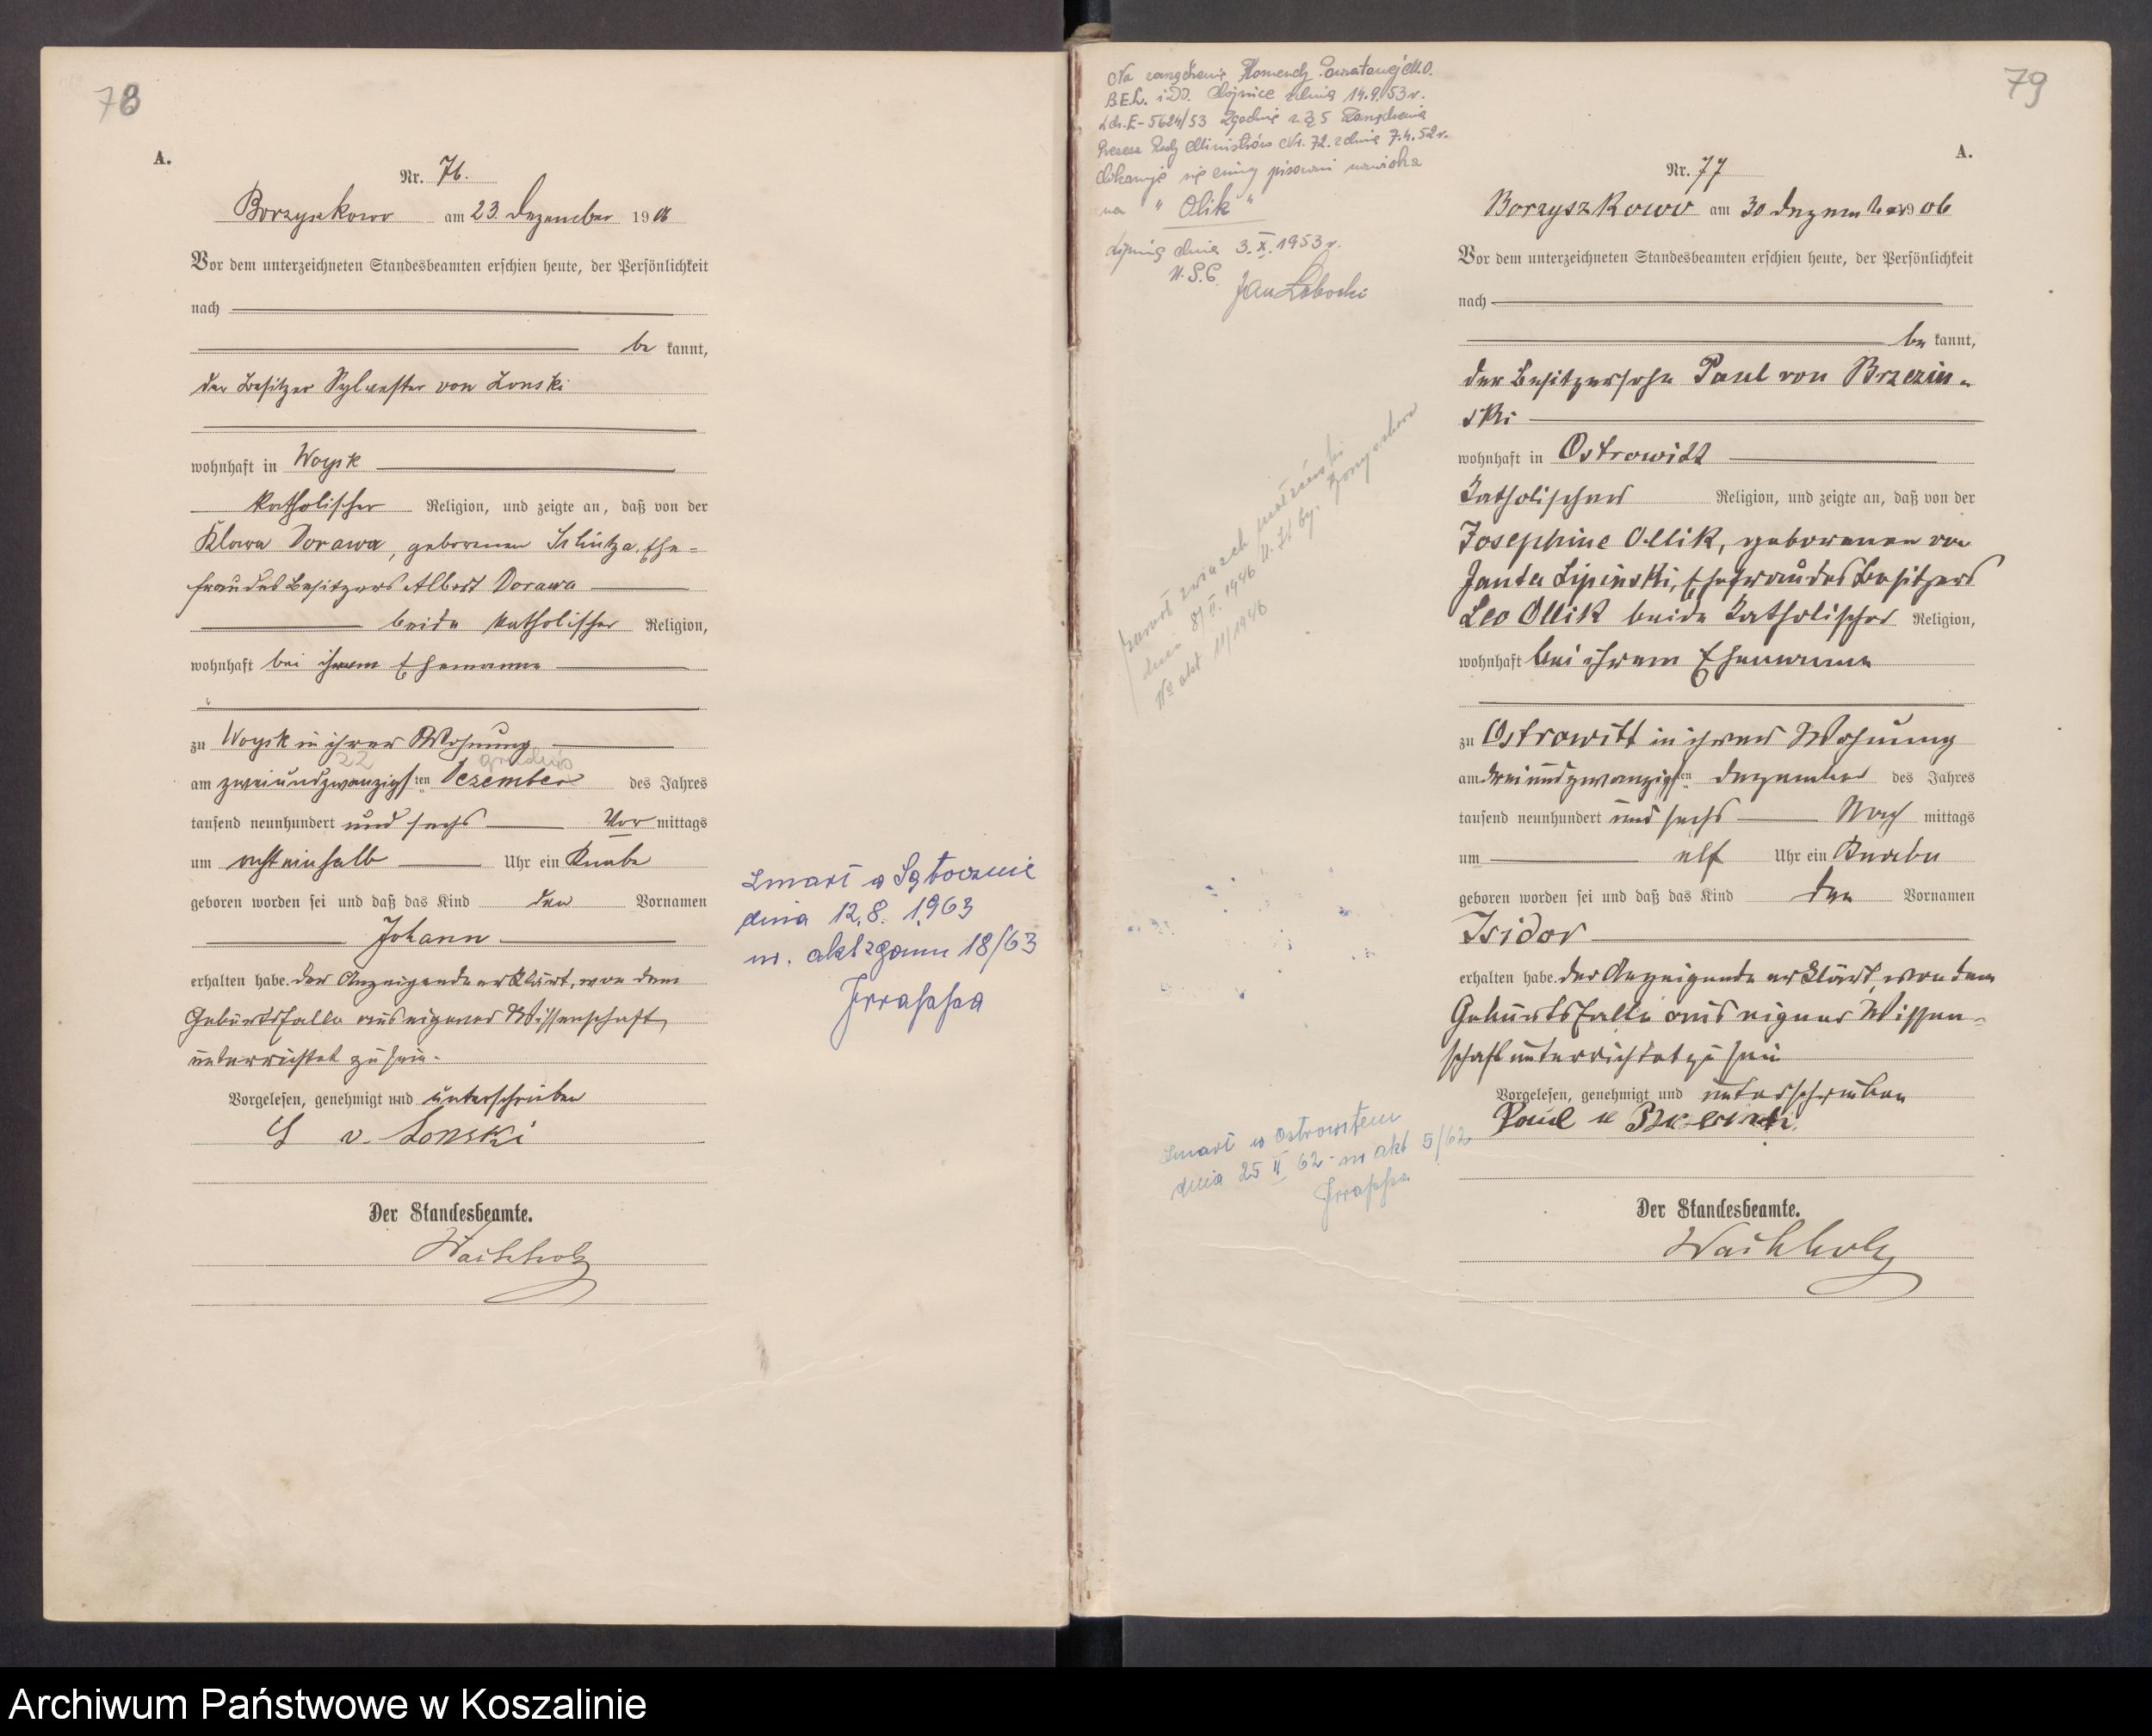 78
A.
Nr. 76.
Borzyszkowo am 23. Dezember 1906
Vor dem unterzeichneten Standesbeamten erschien heute, der Persönlichkeit
nach
be kannt,
der Besitzer Sylvester von Lonski
wohnhaft in Woysk
katholischer Religion, und zeigte an, daß von der
Klara Dorawa, geborenen Schütza, Ehe=
frau des Besitzers Albert Dorawa
beide katholischer Religion,
wohnhaft bei ihrem Ehemanne
zu Woysk in ihrer Wohnung
22 grudnia
am zweiundzwanzigsten Dezember des Jahres
tausend neunhundert und sechs Vor mittags
um achteinhalb Uhr ein Knabe
geboren worden sei und daß das Kind den Vornamen
Johann
erhalten habe. Der Anzeigende erklärt, von dem
Geburtsfalle aus eigener Wissenschaft
unterrichtet zu sein.
Vorgelesen, genehmigt und unterschrieben
S v. Lonski
Der Standesbeamte.
Wachholz
Zmarł w
dnia 12.8. 1963
nr. akt zgonu 18/63
Na Komendy Powiatowej M.O.
B.E.L. i D.O. Chojnice z dnia 14.9.53 r.
L.dz. E-5624/53 Zgodnie z § 5 Zarządzenia
Prezesa Rady Ministrów Nr. 72. z dnia 7.4.52 r.
się pisowni nazwiska
na " Olik "
Lipnica dnia 3.X.1953 r.
U.S.C.
Jan
zawarł związek małżeński
dnia 8/II. 1946
No akt 11/1946
Zmarł w Ostrowitem
dnia 25 II 62 nr akt 5/62
79
A.
Nr. 77
Borzyszkowo am 30 Dezember 1906
Vor dem unterzeichneten Standesbeamten erschien heute, der Persönlichkeit
nach
be kannt,
der Besitzersohn Paul von Brzezin=
ski
wohnhaft in Ostrowitt
katholischer Religion, und zeigte an, daß von der
Josephine Ollik, geborenen von
Janta Lipinski, Ehefrau des Besitzers
Leo Ollik beide katholischer Religion,
wohnhaft bei ihrem Ehemanne
zu Ostrowitt in ihrer Wohnung
am dreiundzwanzigsten Dezember des Jahres
tausend neunhundert und sechs Nach mittags
um elf Uhr ein Knabe
geboren worden sei und daß das Kind den Vornamen
Isidor
erhalten habe. Der Anzeigende erklärt, von dem
Geburtsfalle aus eigener Wissen=
schaft unterrichtet zu sein
Vorgelesen, genehmigt und unterschrieben
Paul v Brzezinski.
Der Standesbeamte.
Wachholz
Archiwum Państwowe w Koszalinie